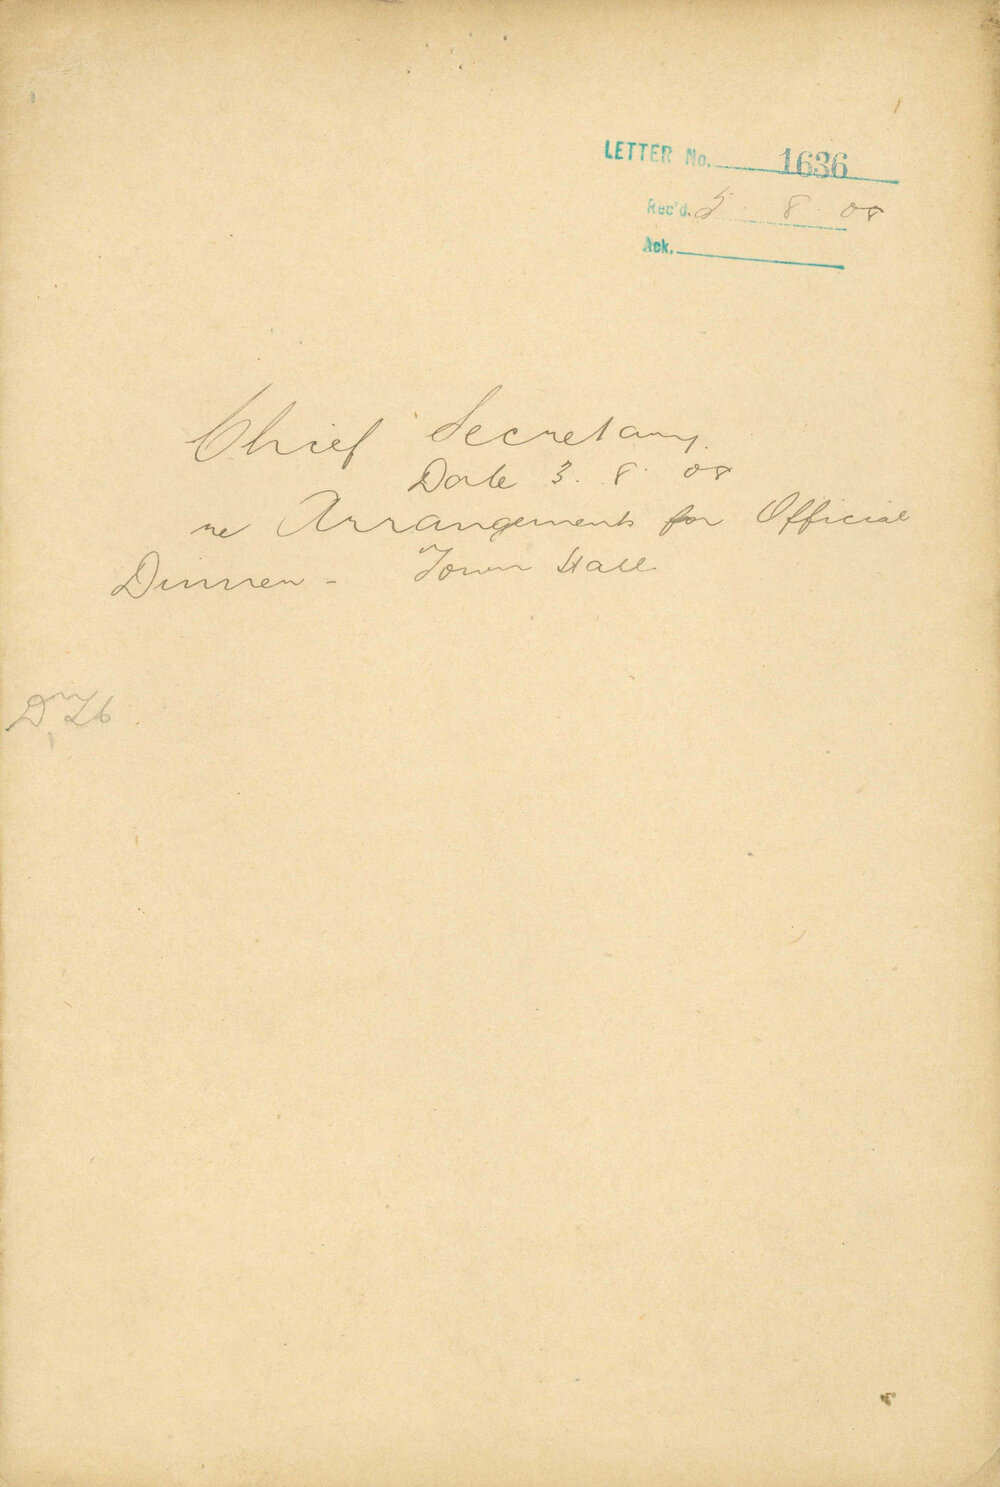 LETTER No. 1636
Rec'd. 5. 8. 08
Ack.
Chief Secretary.
Date 3. 8. 08
re Arrangements for Official
Dinner - Town Hall.